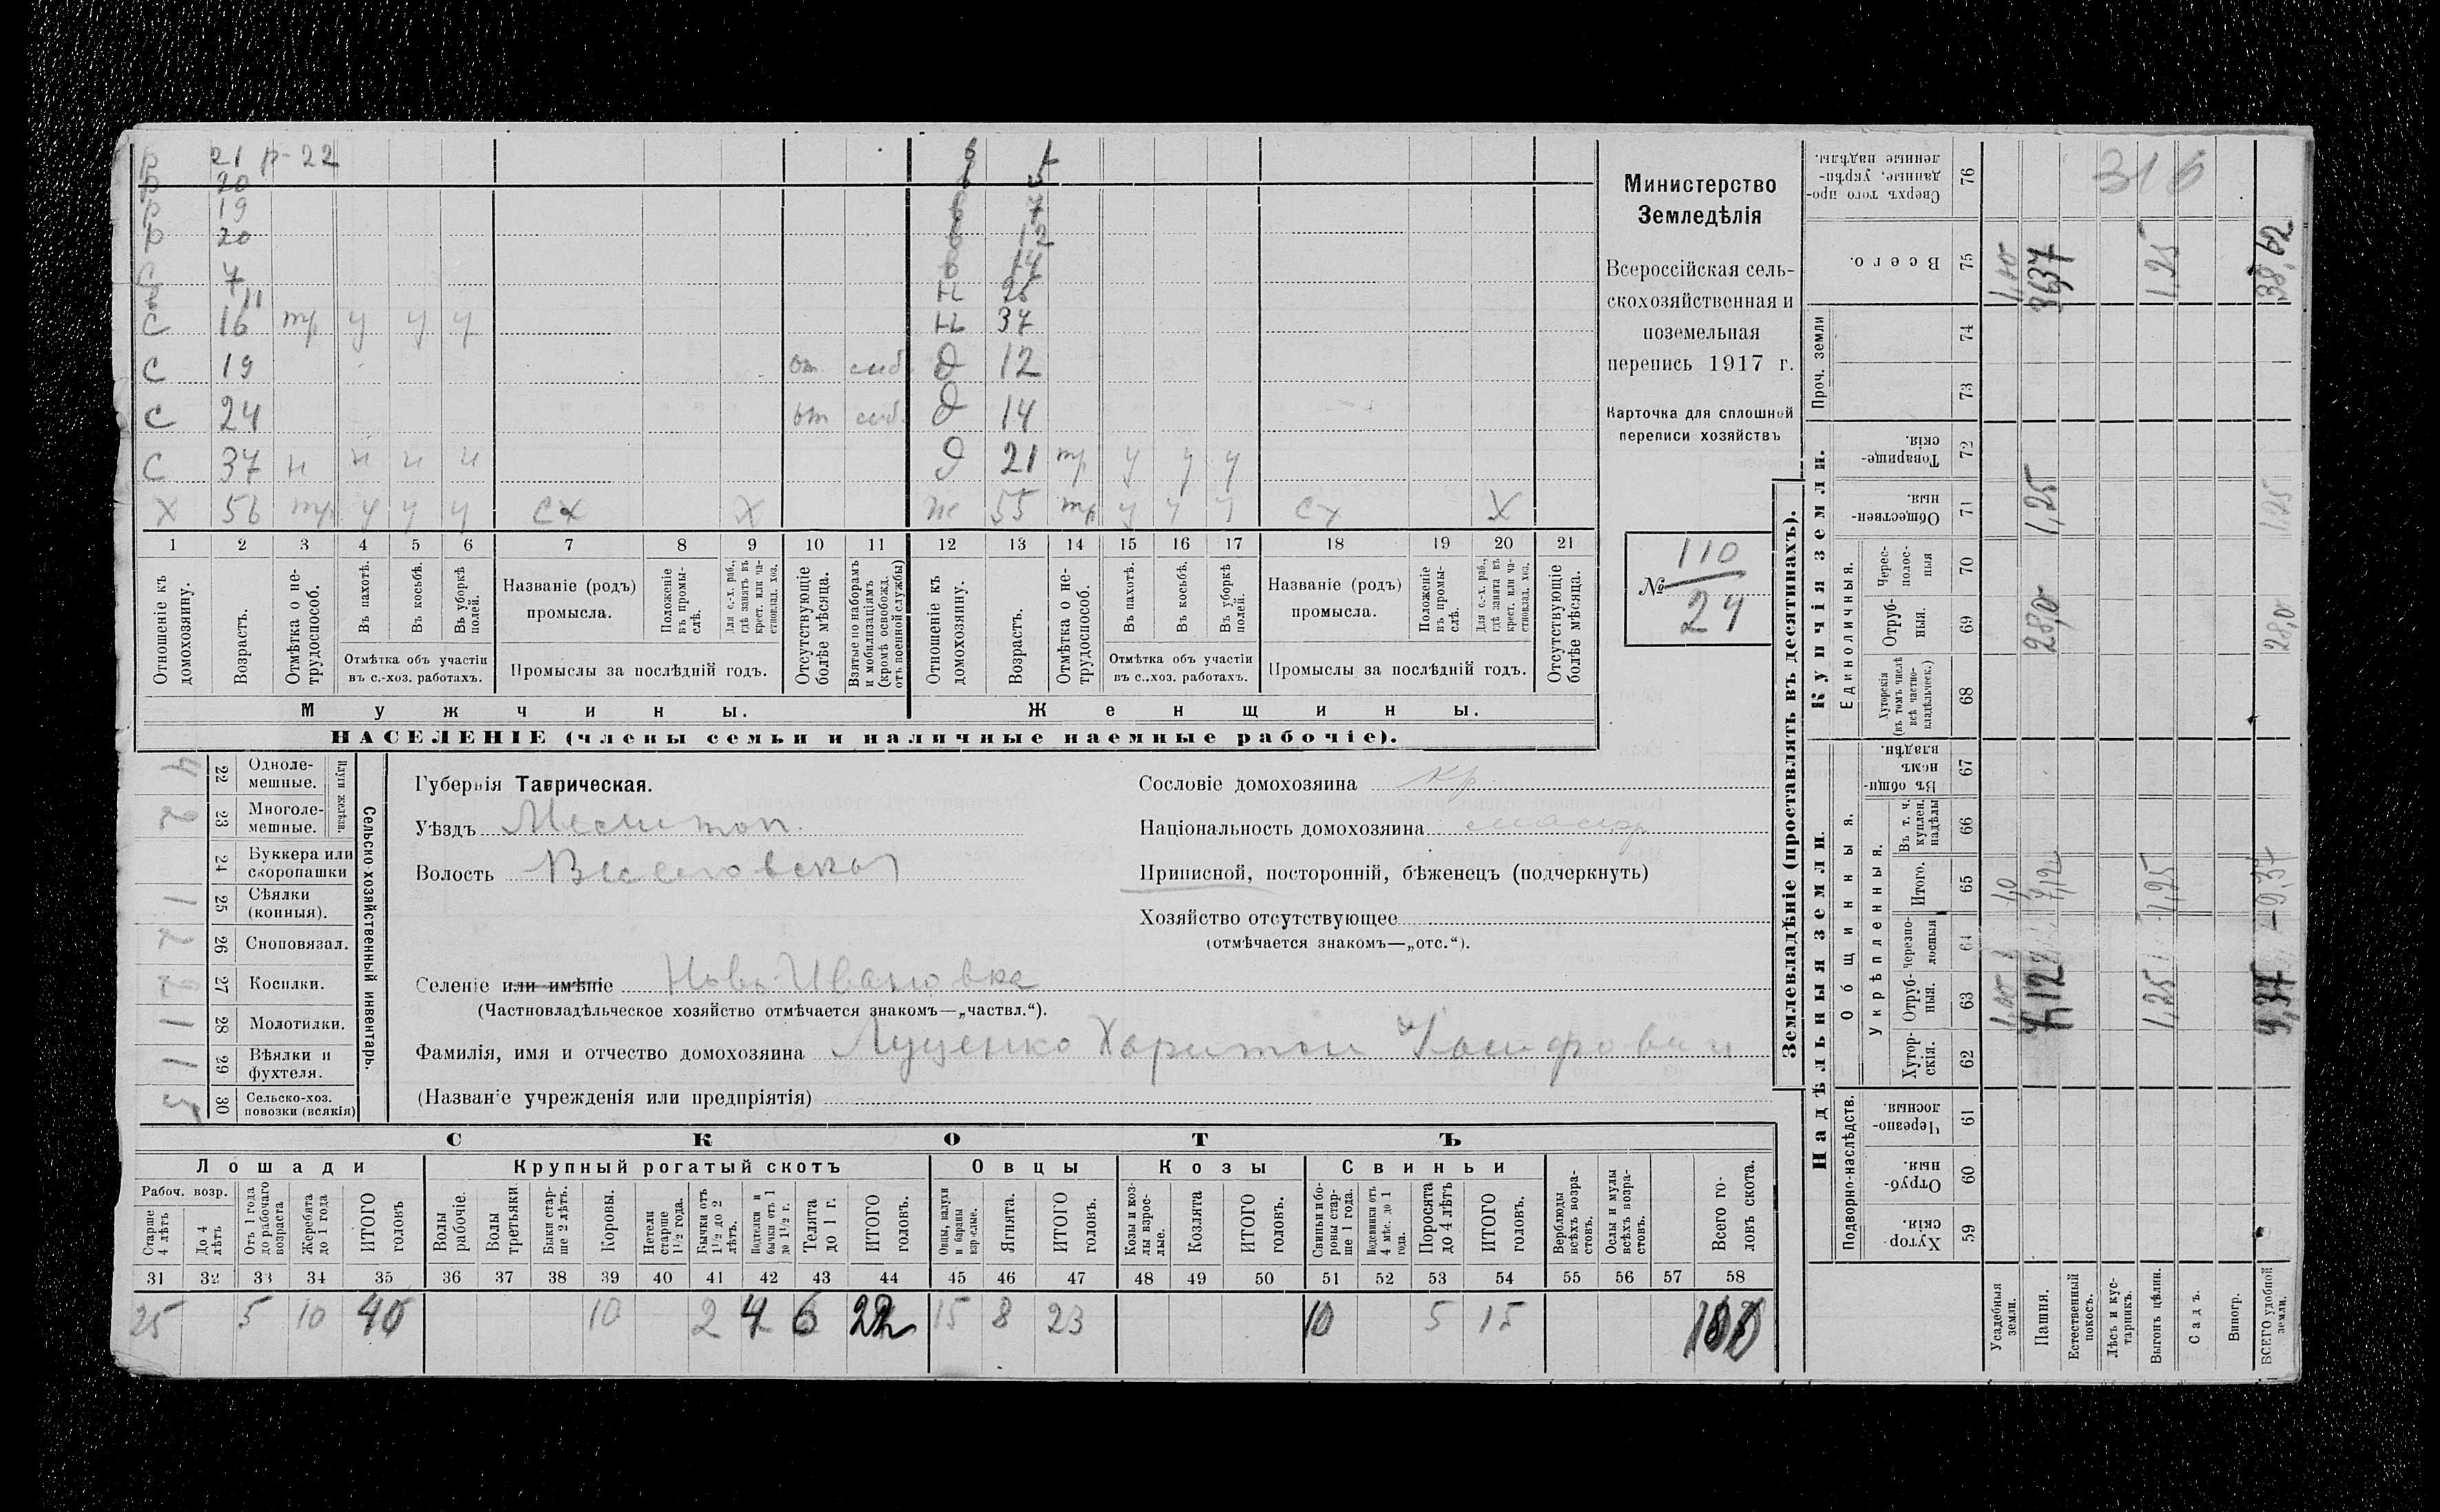 р 21 р-22
р 20
р 19
р 20
с 7
11
с 16 тр у у у
с 19 от
с 24 от
с 37 н н н н
х 56 тр у у у сх х
в 7
в 12
в 14
н 25
н 37
д 12
д 14
д 21 тр у у у
ж 55 тр у у у сх х
1 2 3 4 5 6 7 8 9 10 11 12 13 14 15 16 17 18 19 20 21
Отношеніе къ домохозяину.
Возрастъ.
Отмѣтка о не-
трудоспособ.
Въ пахотѣ.
Въ косьбѣ.
Въ уборкѣ полей.
Отмѣтка объ участіи
въ с.-хоз. работахъ.
Названіе (родъ)
промысла.
Положеніе
въ промы-
слѣ.
Для с.-х. раб.,
гдѣ занятъ въ
крест. или ча-
стновлад. хоз.
Промыслы за послѣдній годъ.
Отсутствующіе
болѣе мѣсяца.
Взятые по наборамъ
и мобилизаціямъ
(кромѣ освобожд.
отъ военной службы)
Отношеніе къ
домохозяину.
Возрастъ.
Отмѣтка о не-
трудоспособ.
Въ пахотѣ.
Въ косьбѣ.
Въ уборкѣ
полей.
Отмѣтка объ участіи
въ с..хоз. работахъ.
Названіе (родъ)
промысла.
Положеніе
въ промы-
слѣ.
Для с.-х. раб.,
гдѣ занята въ
крест. или ча-
стновлад. хоз.
Промыслы за послѣдній годъ.
Отсутствующіе
болѣе мѣсяца.
Мужчины.
Женщины.
НАСЕЛЕНІЕ (члены семьи и наличные наемные рабочіе).
Министерство
Земледѣлія
Всероссійская сель-
скохозяйственная и
поземельная
перепись 1917 г.
Карточка для сплошной
переписи хозяйствъ
№ 110
24
22 Одноле-
мешные.
2 23 Многоле-
мешные.
Плуги желѣзн.
24 Буккера или
скоропашки
1 25 Сѣялки
(конныя).
26 Сноповязал.
2 27 Косилки.
1 28 Молотилки.
1 29 Вѣялки и
фухтеля.
5 30 Сельско-хоз.
повозки (всякія)
Сельско-хозяйственный инвентарь.
Губернія Таврическая.
Уѣздъ Мелитоп.
Волость Веселовская
Селеніе или имѣніе Ново-Ивановка
(Частновладѣльческое хозяйство отмѣчается знакомъ—„частвл.“).
Фамилія, имя и отчество домохозяина Луценко Харитон Иосифович
(Названіе учрежденія или предпріятія)
Сословіе домохозяина кр.
Національность домохозяина малор
Приписной, посторонній, бѣженецъ (подчеркнуть)
Хозяйство отсутствующее
(отмѣчается знакомъ—„отс.“).
СКОТЪ
Лошади
Крупный рогатый скотъ
Овцы
Козы
Свиньи
Рабоч. возр.
Старше
4 лѣтъ
До 4
лѣтъ
Отъ 1 года
до рабочаго
возраста
Жеребята
до 1 года
ИТОГО
головъ
Волы
рабочіе.
Волы
третьяки.
Быки стар-
ше 2 лѣтъ.
Коровы.
Нетели
старше
1½ года.
Бычки отъ
1½ до 2
лѣтъ.
Подтелки и
бычки отъ 1
до 1½ г.
Телята
до 1 г.
ИТОГО
головъ.
Овцы, валухи
и бараны
взрослые.
Ягнята.
ИТОГО
головъ.
Козы и коз-
лы взрос-
лые.
Козлята
ИТОГО
головъ.
Свиньи и бо-
ровы стар-
ше 1 года.
Подсвинки отъ
4 мѣс. до 1
года.
Поросята
до 4 лѣтъ
ИТОГО
головъ.
Верблюды
всѣхъ возра-
стовъ.
Ослы и мулы
всѣхъ возра-
стовъ.
Всего го-
ловъ скота.
31 32 33 34 35 36 37 38 39 40 41 42 43 44 45 46 47 48 49 50 51 52 53 54 55 56 57 58
25 5 10 40 10 2 4 6 22 15 8 23 10 5 15
Землевладѣніе (проставлять въ десятинахъ).
Надѣльныя земли.
Купчія земли.
Проч. земли
Подворно-наслѣдств.
Общинныя.
Укрѣпленныя.
Единоличныя.
Сверхъ того про-
данные, укрѣп-
ленные надѣлы. 76
316
Всего. 75
36,37 1,25 38,62
74
73
Товарище-
скія. 72
Обществен-
ныя. 71
1,25 1,25
Черес-
полос-
ныя 70
Отруб-
ныя. 69
28,0 28,0
Хуторскія
(въ томъ числѣ
всѣ частно-
владѣльческ.) 68
Въ общи-
номъ
владѣн. 67
Въ т. ч.
куплен.
надѣлы 66
Итого. 65
1,0 7,12 1,25 9,37
Черезпо-
лосныя 64
Отруб-
ныя. 63
7,12 1,25 9,37
Хутор-
скія. 62
Черезпо-
лосныя. 61
Отруб-
ныя. 60
Хутор
скія. 59
Усадебныя
земли.
Пашня.
Естественный
покосъ.
Лѣсъ и кус-
тарникъ.
Выгонъ цѣлин.
Садъ.
Виногр.
ВСЕГО удобной
земли.